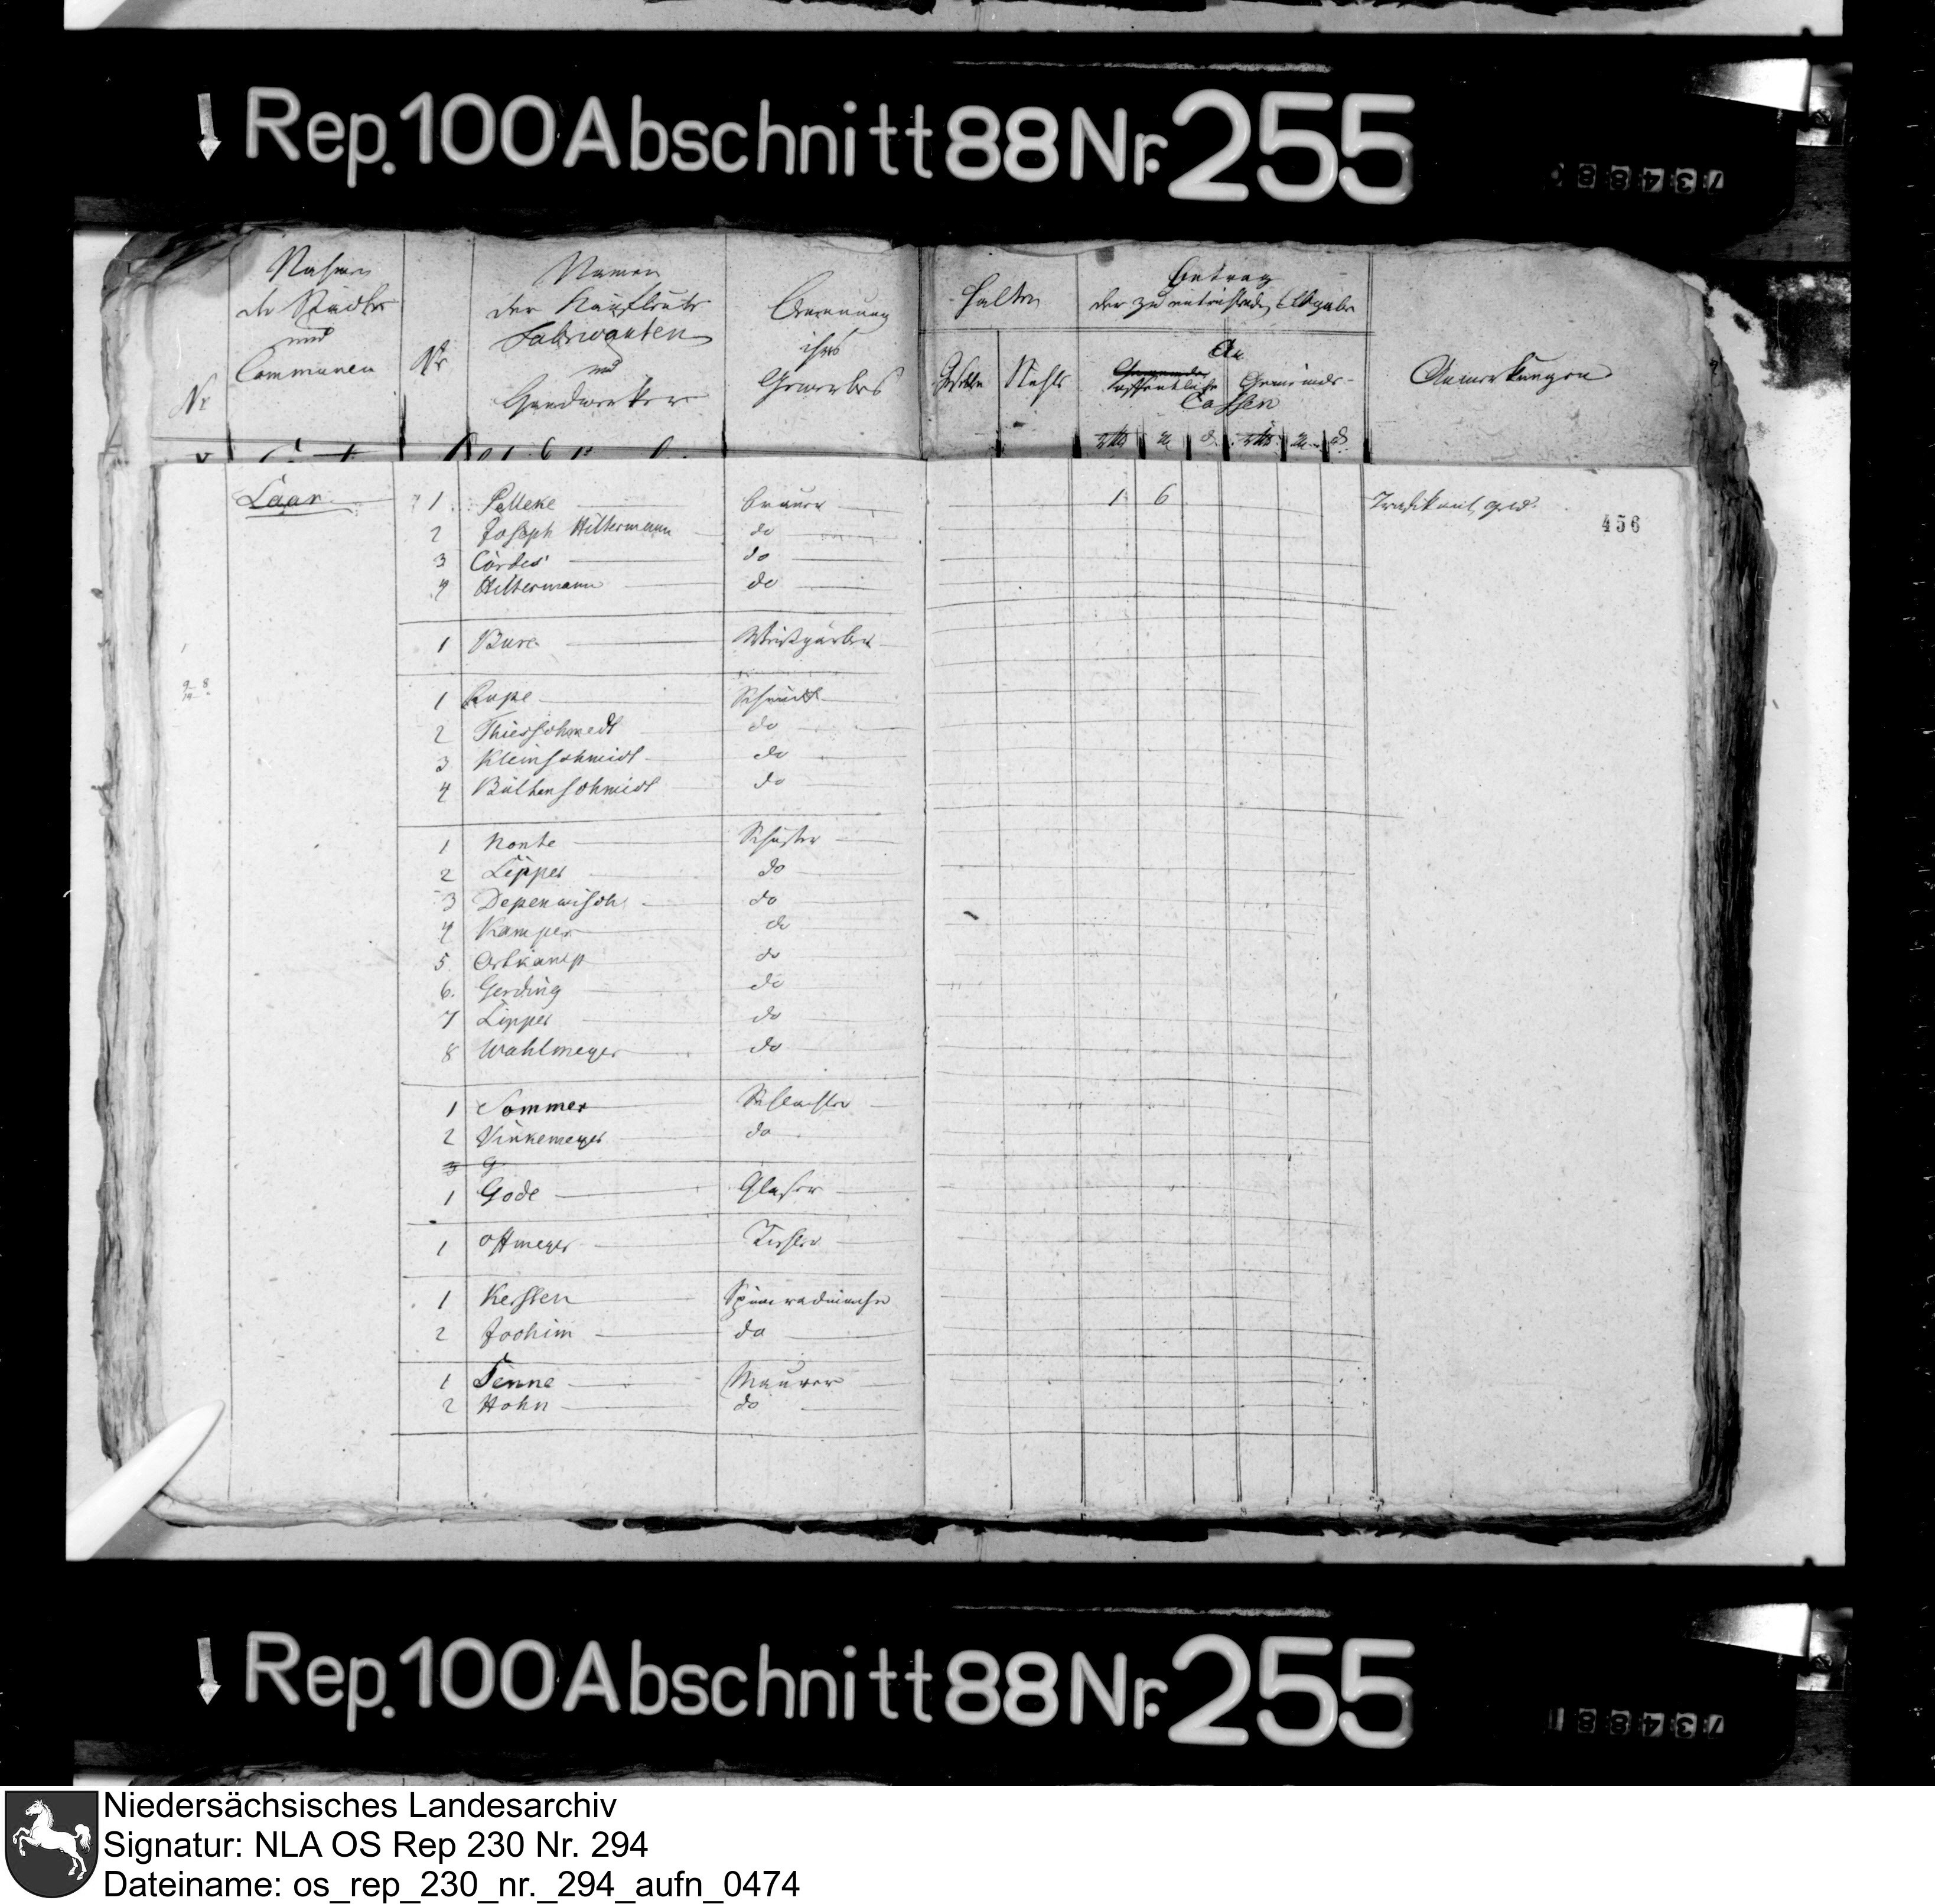 Rep. 100 Abschnitt 88 Nr. 255
Nahmen
der Städte
und
Communen
Nr
Nr
Namen
der Kaufleute
Fabricanten
und
Handwerker
Benennung
ihres
Gewerbes
halten
Betrag
der zu entrichtenden Abgabe
An
Gemeinde-
Cassen
Anmerkungen
Laar
456
1 Pelleke Brauer 1 6
2 Joseph Hiltermann do
3 Cordes do
4 Hiltermann do
1 Bure Weisgärber
1 Rupe Schmidt
2 Thiesschmedt do
3 Kleinschmidt do
4 Bültenschmidt do
1 Nonte Schuster
2 Lipper do
3 Depenwisch do
4 Kamper do
5 Ortkamp do
6. Gerding do
7 Lipper do
8 Wahlmeyer do
1 Sommer Schlachter
2 Vinkemeyer do
3 G
1 Gode Glaser
1 Ostmeyer Tischler
1 Kersten Spinnradmacher
2 Jochim do
1 Tenne Maurer
2 Hohn do
Rep. 100 Abschnitt 88 Nr. 255
Niedersächsisches Landesarchiv
Signatur: NLA OS Rep 230 Nr. 294
Dateiname: os_rep_230_nr._294_aufn_0474